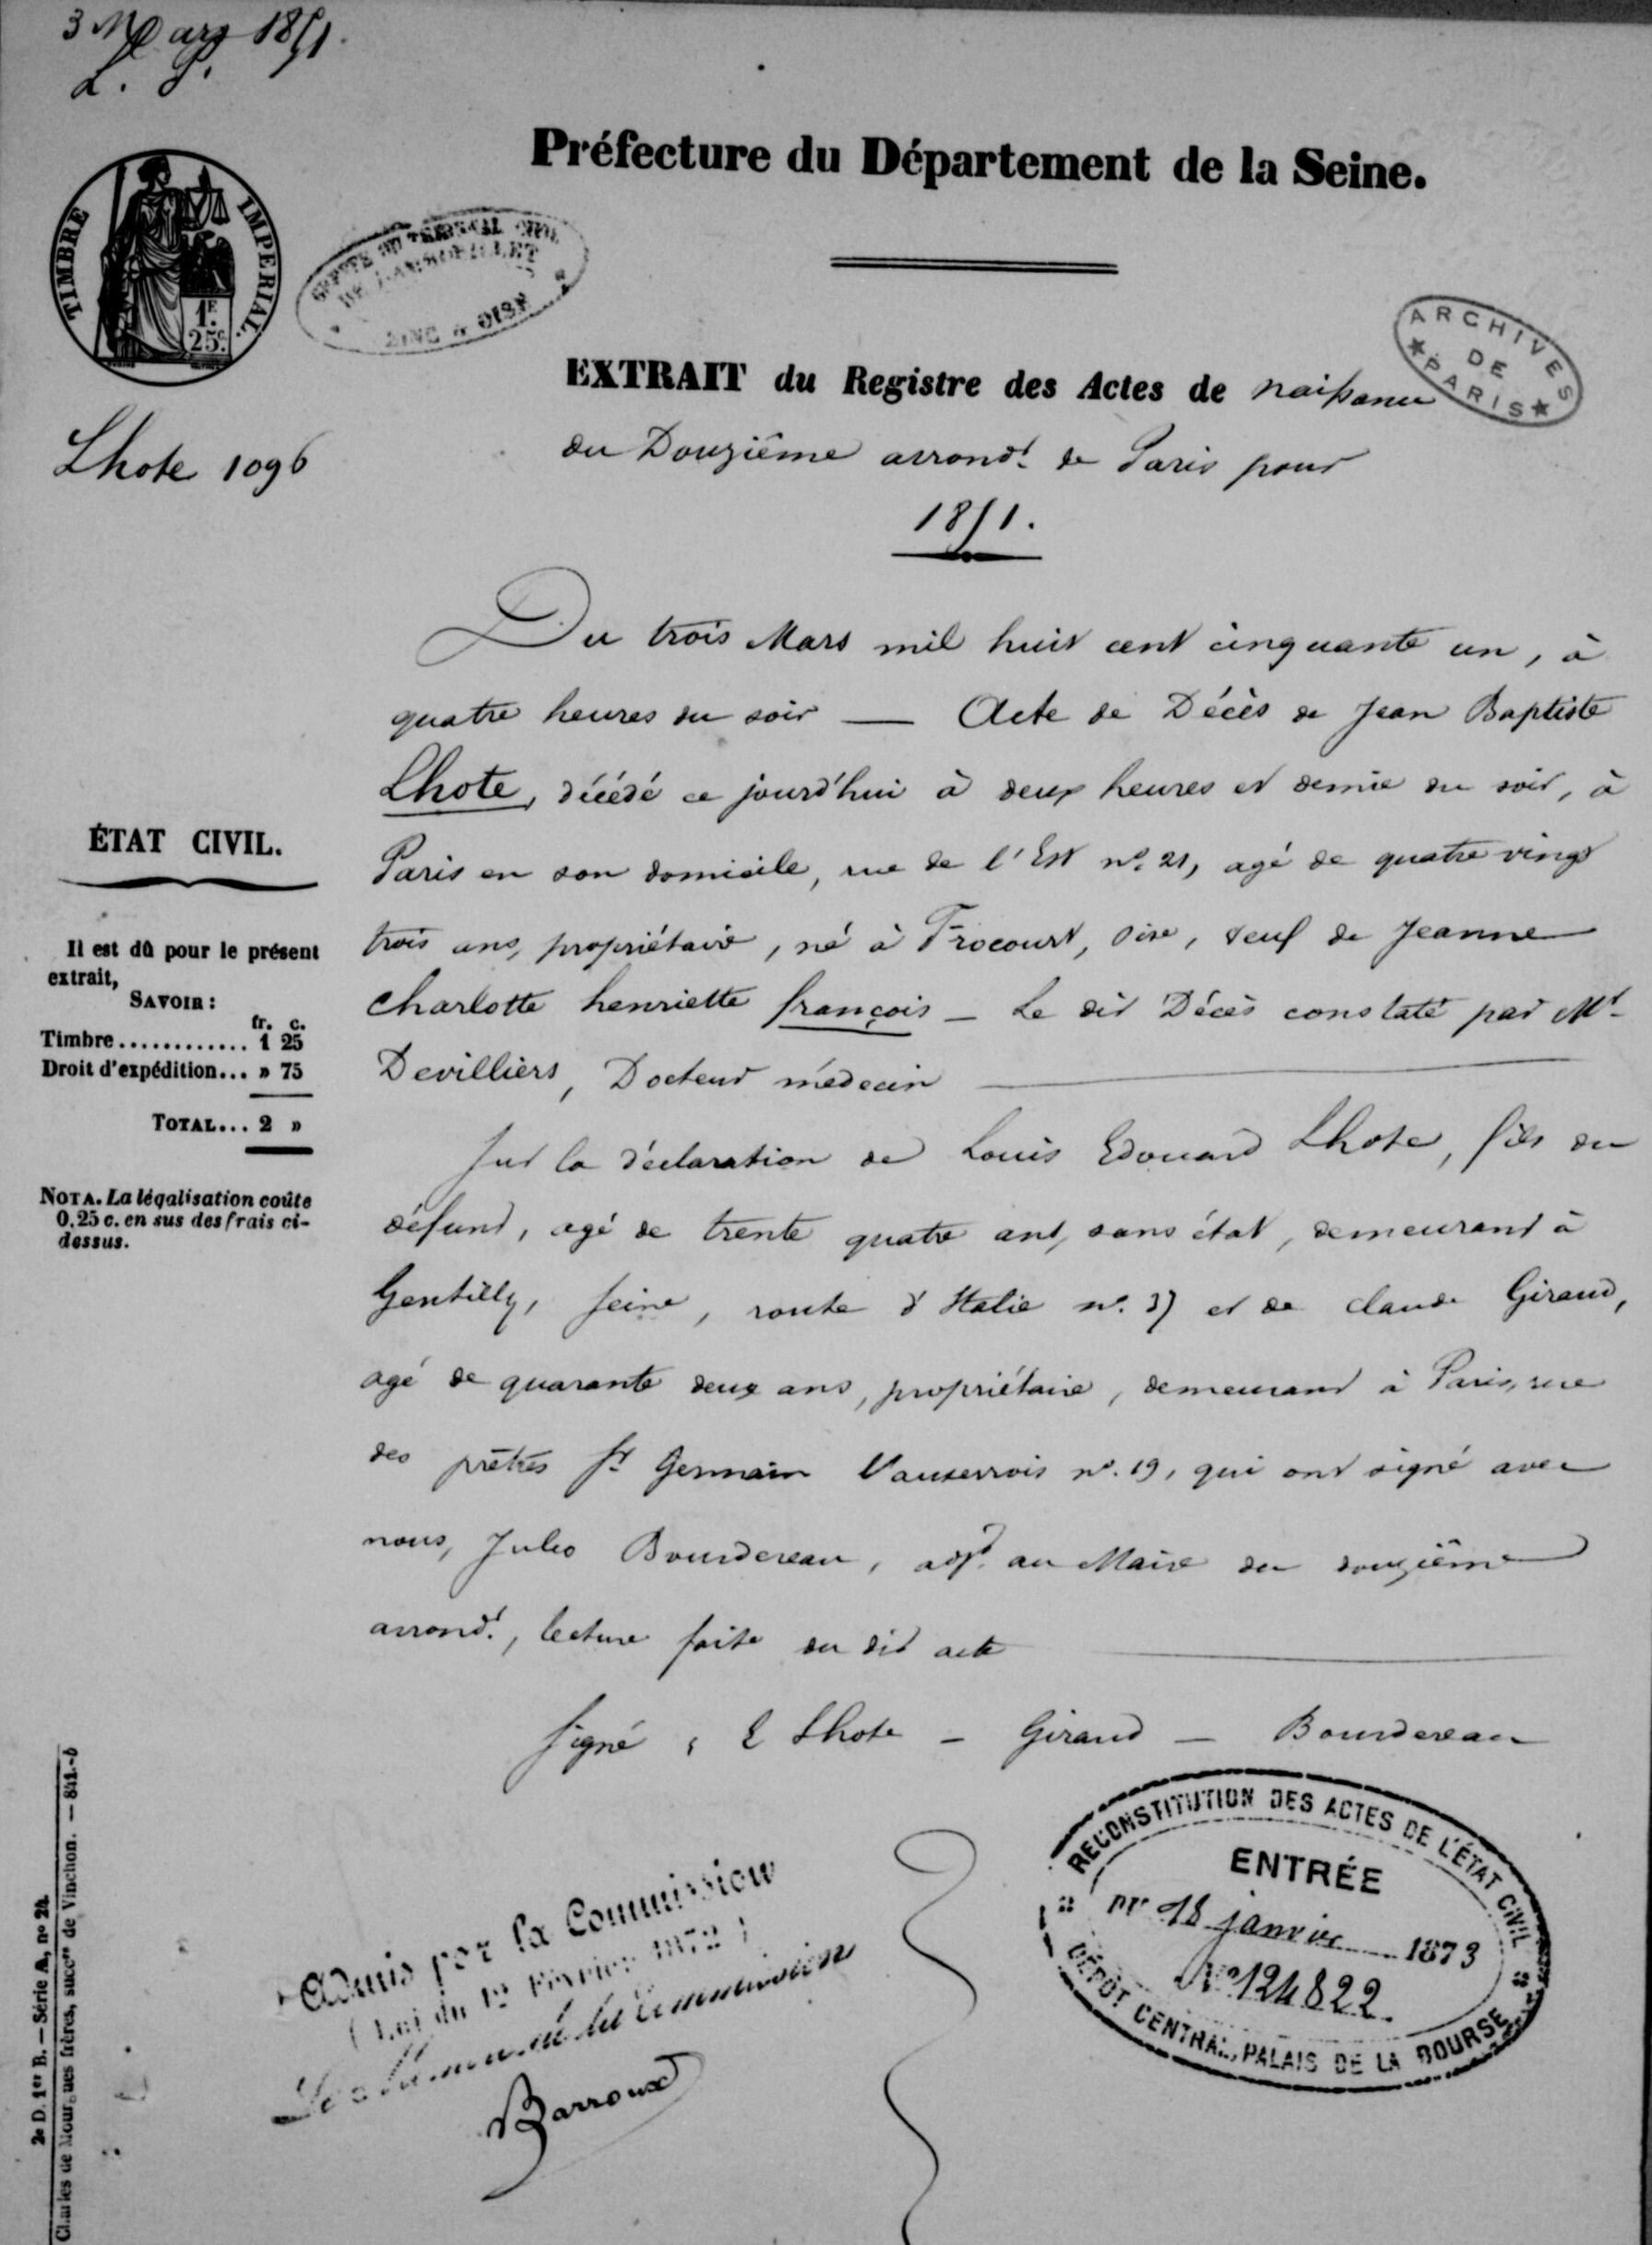 3 Mars 1851.
L. P.
Préfecture du Département de la Seine.
TIMBRE IMPERIAL.
1F.
25c.
GREFFE DU TRIBUNAL CIVIL
DE RAMBOUILLET
& OISE
ARCHIVES
DE
PARIS
EXTRAIT du Registre des Actes de naissance
du Douzième arrondt. de Paris pour
1851.
Lhote 1096
Du trois Mars mil huit cent cinquante un, à
quatre heures du soir — Acte de Décès de Jean Baptiste
Lhote, décédé ce jourd'hui à deux heures et demie du soir, à
Paris en son domicile, rue de l'Est no. 21, agé de quatre vingt
trois ans, propriétaire, né à Frocourt, Oise, veuf de Jeanne
Charlotte henriette françois — Le dit Décès constaté par Mr
Devilliers, Docteur médecin
Sur la déclaration de Louis Edouard Lhote, fils du
défunt, agé de trente quatre ans, sans état, demeurant à
Gentilly, Seine, route d'Italie no. et de claude Giraud,
agé de quarante deux ans, propriétaire, demeurant à Paris, rue
des prêtres St Germain l'auxerrois no. 19, qui ont signé avec
nous, Jules Bourdereau, adjt. au Maire du douzième
arrondt., lecture faite du dit acte
Signé : E Lhote — Giraud — Bourdereau
ÉTAT CIVIL.
Il est dû pour le présent
extrait,
SAVOIR :
fr. c.
Timbre............ 1 25
Droit d'expédition... » 75
TOTAL... 2 »
NOTA. La légalisation coûte
0,25 c. en sus des frais ci-
dessus.
Admis par la Commission
(Loi du 12 Février 1872)
Le Membre de la Commission
Barroux
RECONSTITUTION DES ACTES DE L'ÉTAT CIVIL
ENTRÉE
DU 18 janvier 1873
No 124822.
DÉPÔT CENTRAL, PALAIS DE LA BOURSE
2e D. 1er B. — Série A, no 24.
Charles de Mourgues frères, succrs de Vinchon. — 841-5